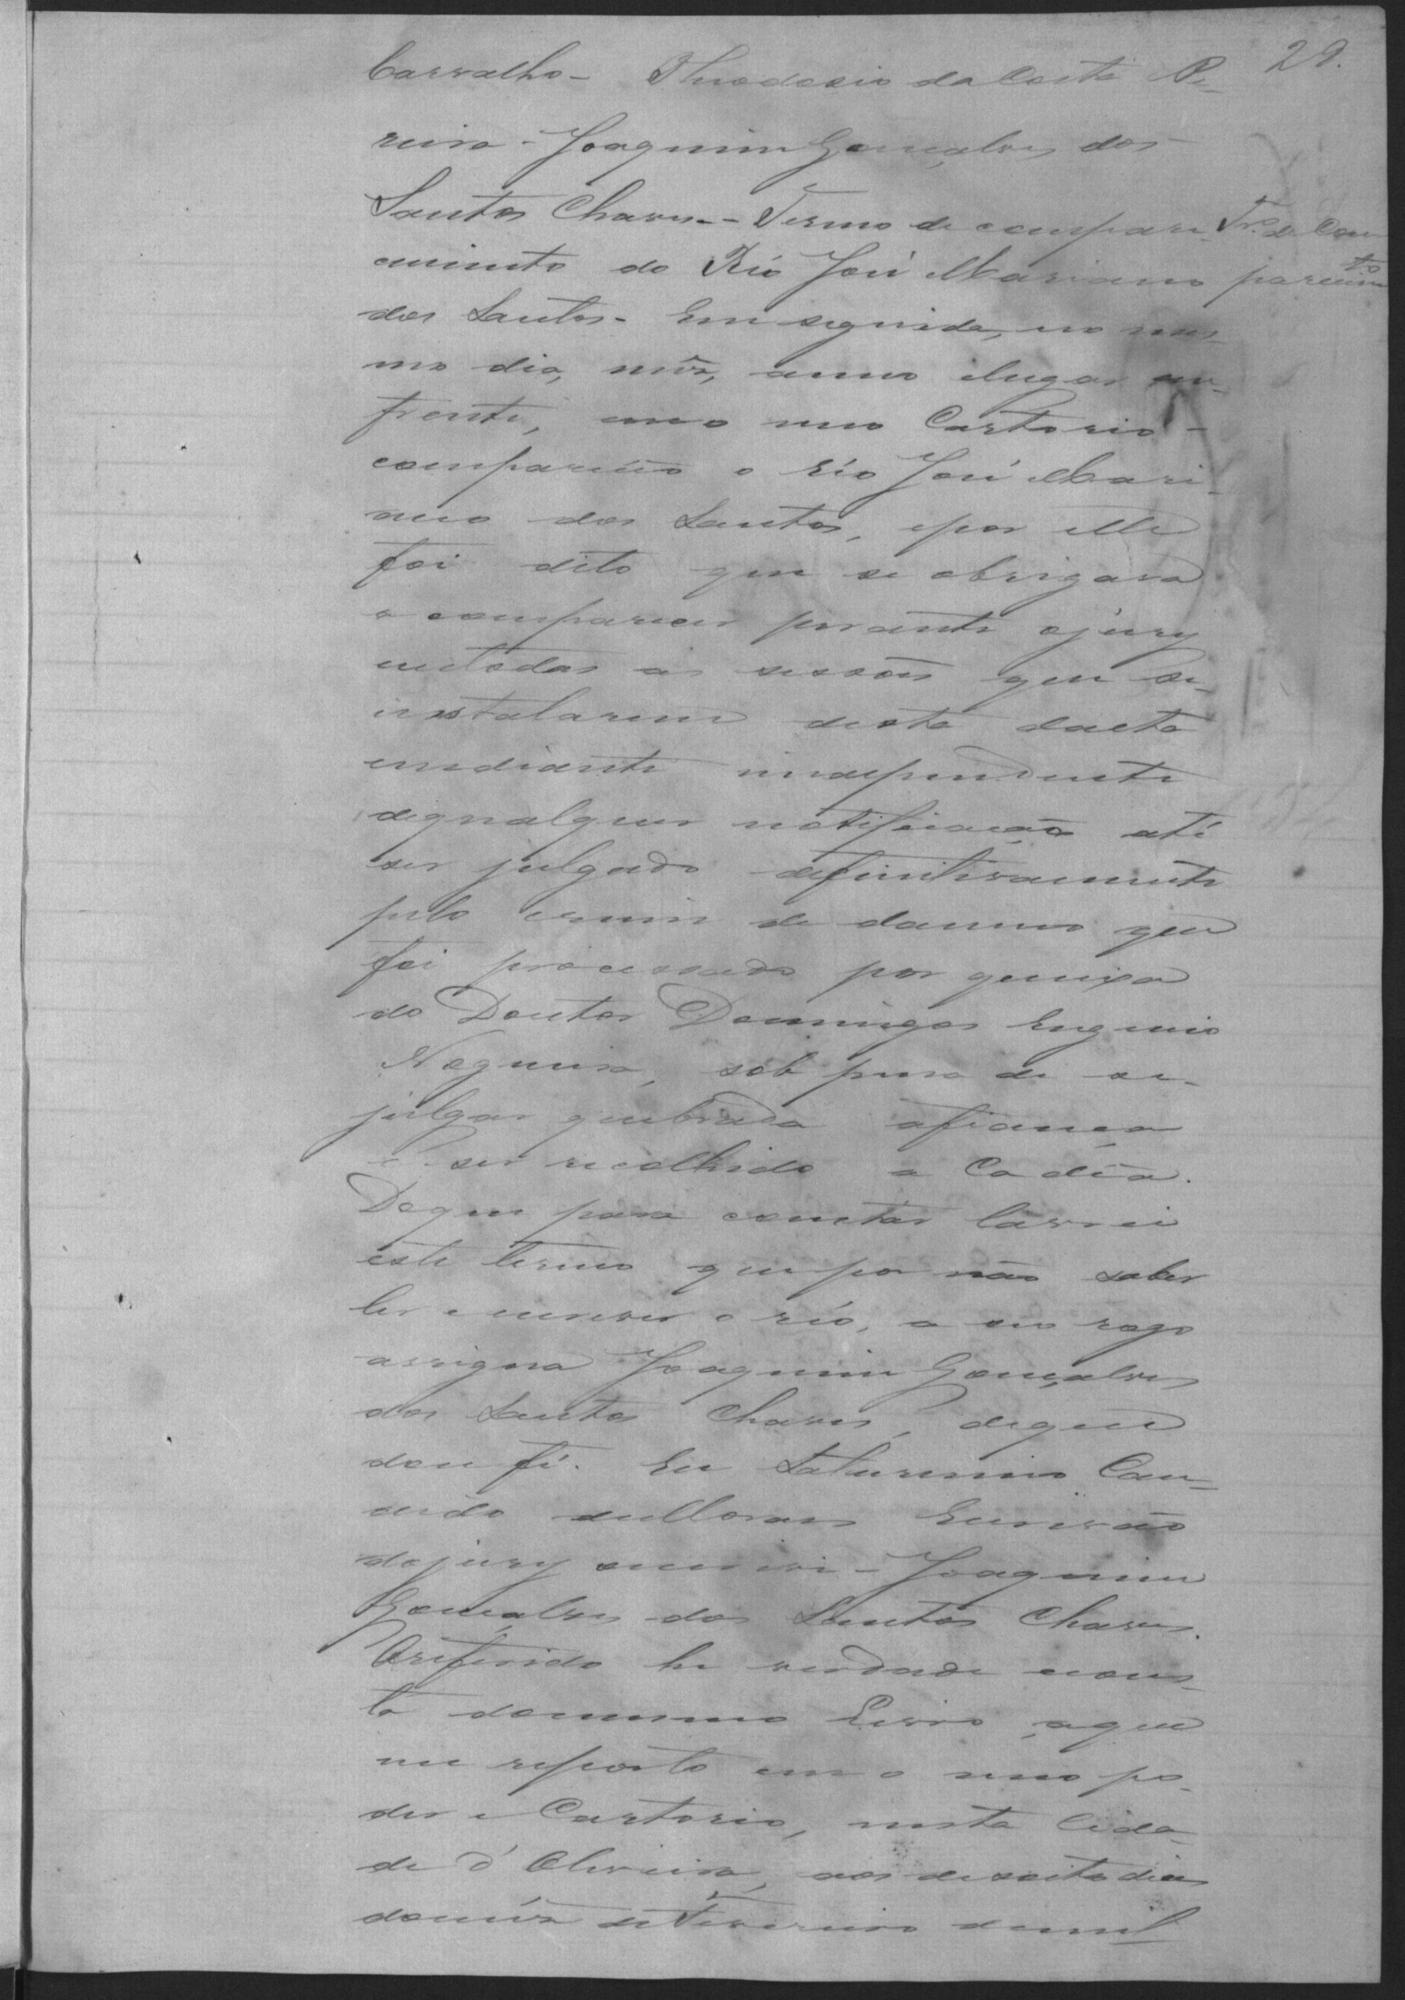 29.
Carvalho - Theodosio da Costa Pe-
reira - Joaquim Gonçalves dos
Santos Chaves - Termo de compare-
cimento do Réo José Mariano
Tr.º de Com
parecim.to
dos Santos - Em seguida, no mes-
mo dia, mês, anno e lugar
em o meo Cartorio -
compareceo o Réo José Mari-
ano dos Santos, e por elle
foi dito que se obrigava
a comparecer perante o jury
em todas as sessões que se
installarem desta dacta
em diante independente
de qualquer notificação até
ser julgado definitivamente
pelo crime de damno que
foi processado por queixa
do Doutor Domingos Eugenio
Nogueira, sob pena de se
julgar quebrada a fiança
e ser recolhido a Cadêa.
Do que para constar lavrei
este termo que por não saber
ler e escrever o réo, a seo rogo
assigna Joaquim Gonçalves
dos Santos Chaves, do que
dou fé. Eu Saturnino Can-
dido de Moraes Escrivão
do jury escrevi - Joaquim
Gonçalves dos Santos Chaves.
O referido he verdade e cons-
ta do mesmo Livro a que
me reporto em o meo po-
der e Cartorio, nesta Cida-
de d'Oliveira, aos desoito dias
do mês de Fevereiro de mil